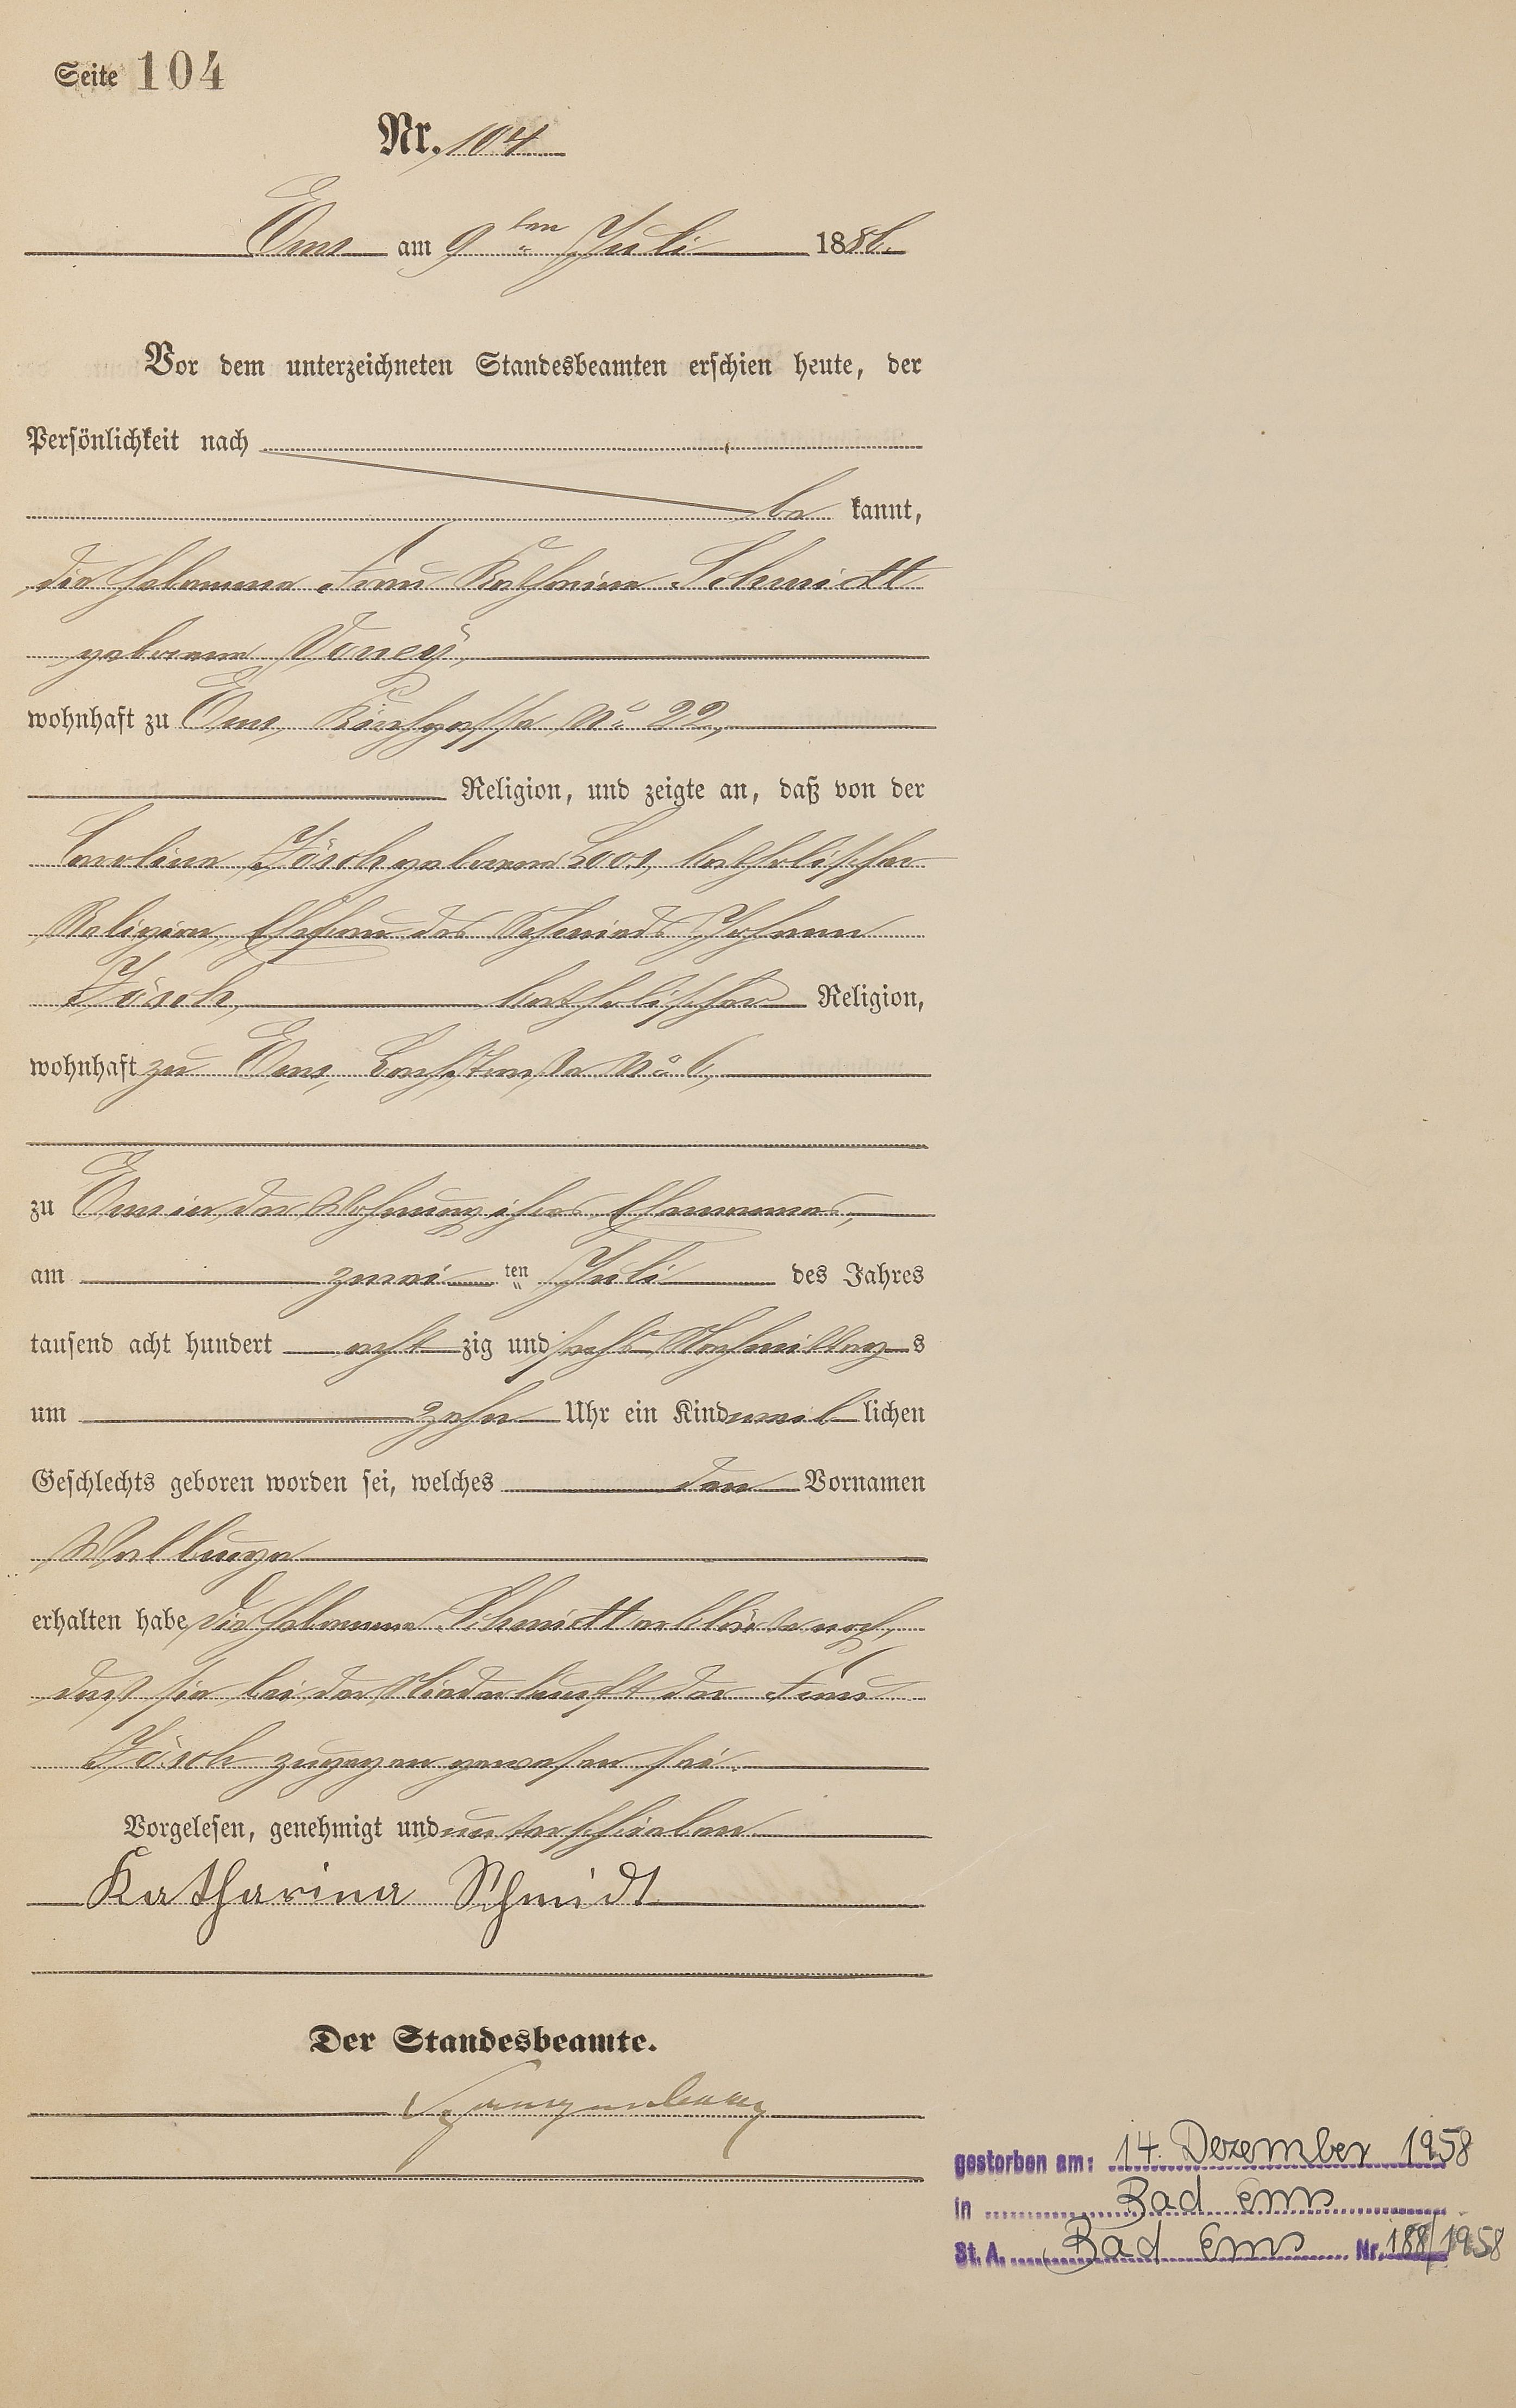 Seite 104
Nr. 104
Ems am 9ten Juli 1886.
Vor dem unterzeichneten Standesbeamten erschien heute, der
Persönlichkeit nach
be kannt,
die Hebamme Frau Katharina Schmidt
geborene
wohnhaft zu Ems, Kirchgasse No 22,
Religion, und zeigte an, daß von der
Caroline Jösch geborene Loos, katholischer
Religion, Ehefrau des Schmieds Johann
Jösch, katholischer Religion,
wohnhaft zu Ems, Bachstraße No 6,
zu Ems in der Wohnung ihres Ehemannes,
am zwei ten Juli des Jahres
tausend acht hundert acht zig und sechs Nachmittag s
um zehn Uhr ein Kind weib lichen
Geschlechts geboren worden sei, welches den Vornamen
Walburga
erhalten habe, die Hebamme Schmidt erklärte noch,
daß sie bei der Niederkunft der Frau
Jösch zugegen gewesen sei.
Vorgelesen, genehmigt und unterschrieben
Katharina Schmidt
Der Standesbeamte.
gestorben am: 14. Dezember 1958
in Bad Ems
St. A. Bad Ems Nr. 188/1958